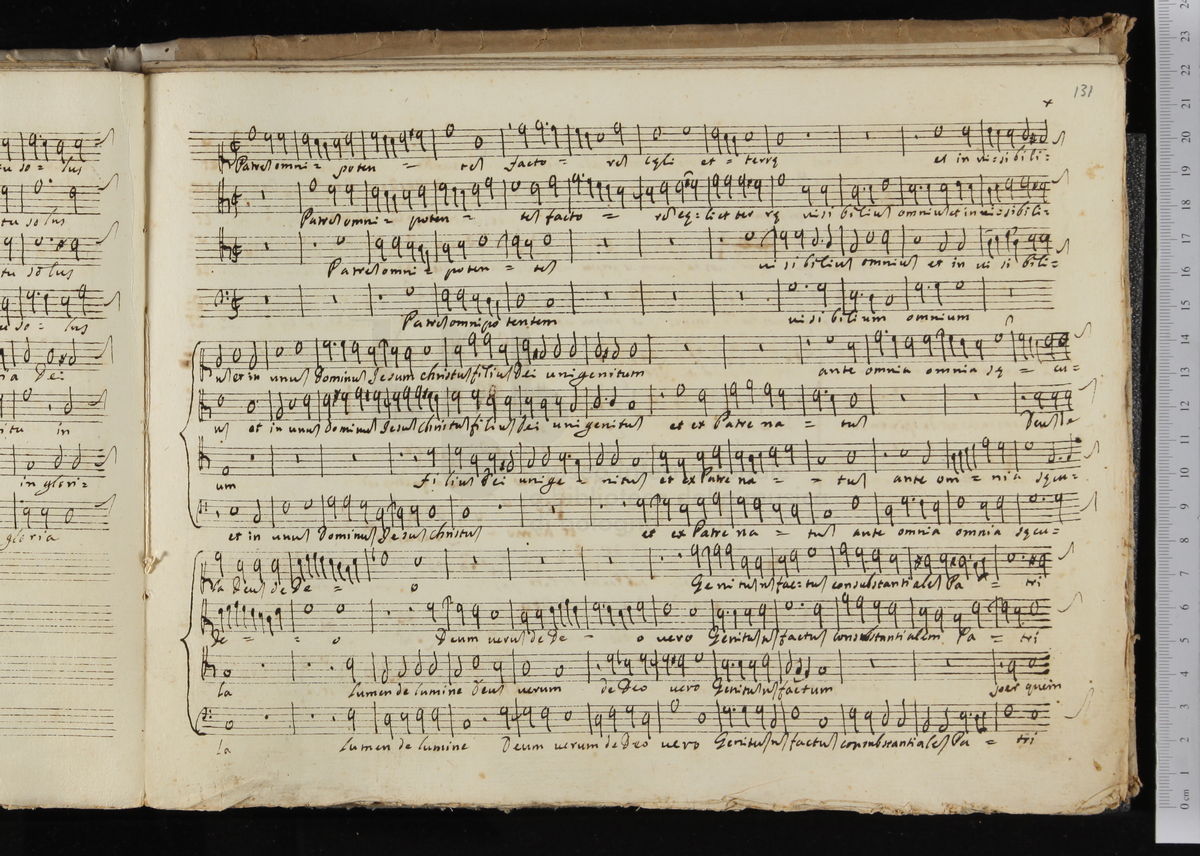 131
tu so = lus
Patrem omni = poten = tem facto = rem cęli et = terrę et in vissibili =
tu so lus
Patrem omni = poten = tem facto = rem cę = li et ter rę visi bilium omnium et in vissibili =
tu so lus
Patrem omni = poten = tem vi si bilium omnium et in vi si bili =
so = lus
Patrem omnipo tentem visi bilium omnium
Dei
um et in unum Dominum Jesum christum filium Dei unigenitum ante omnia omnia sę = cu =
in
um et in unum Dominum Jesum christum filium Dei unigenitum et ex Patre na = tum
in glori =
um fi lium Dei unige = nitum et ex Patre na = = tum ante om = nia sęcu =
gloria
et in unum Dominum Jesum christum et ex Patre na = tum ante omnia omnia sęcu =
la Deum de De = o Genitum factum consubstantialem Pa = tri
De = = o Deum verum de De = o vero Genitum factum consubstantialem Pa = tri
la lumen de lumine Deum verum de Deo vero Genitum factum per quem
la lumen de lumine Deum verum de Deo vero Genitum factum consubstantialem Pa = tri